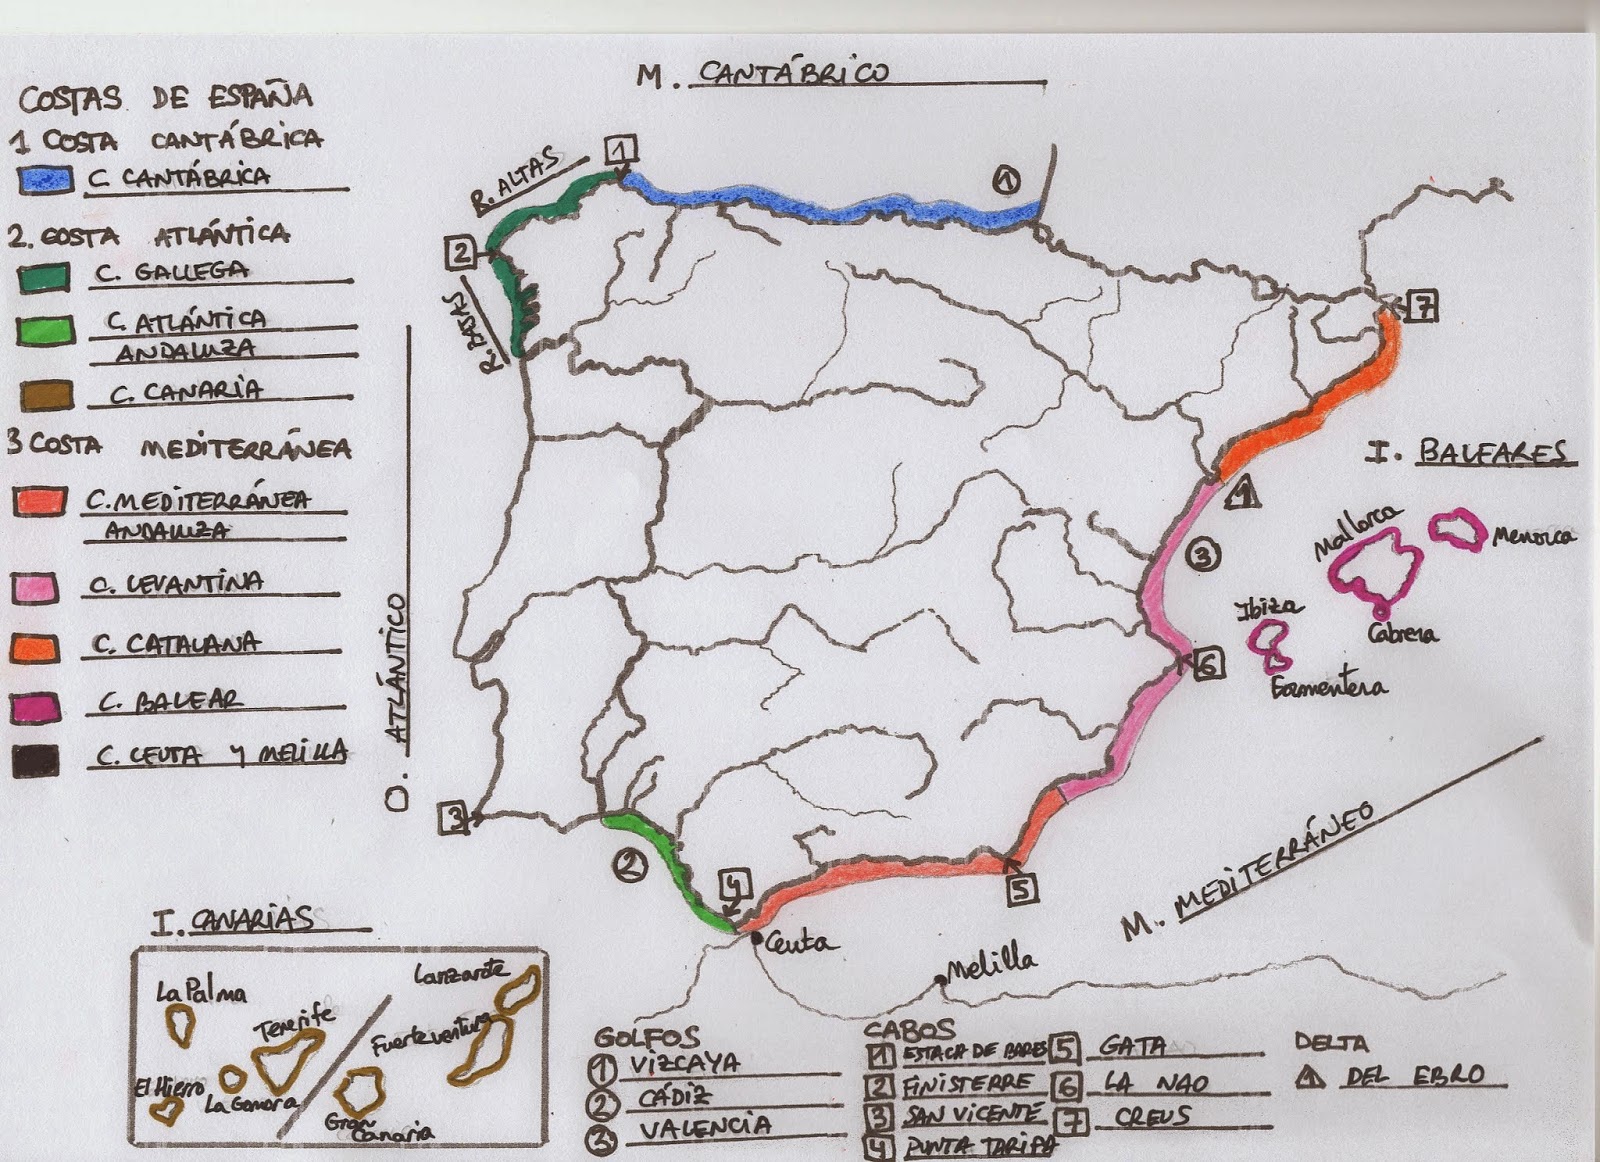 M. CANTÁBRICO
COSTAS DE ESPAÑA
1 COSTA CANTÁBRICA
C CANTÁBRICA
2. COSTA ATLÁNTICA
C. GALLEGA
C. ATLÁNTICA
ANDALUZA
C. CANARIA
3 COSTA MEDITERRÁNEA
C. MEDITERRÁNEA
ANDALUZA
C. LEVANTINA
C. CATALANA
C. BALEAR
C. CEUTA Y MELILLA
R. ALTAS
1
1
2
R. BAJAS
7
O. ATLÁNTICO
I. BALEARES
1
Mallorca
Menorca
3
Ibiza
Cabrera
6
Formentera
3
2
4
5
M. MEDITERRÁNEO
Ceuta
Melilla
I. CANARIAS
La Palma
Lanzarote
Tenerife
Fuerteventura
El Hierro
La Gomera
Gran
Canaria
GOLFOS
1 VIZCAYA
2 CÁDIZ
3 VALENCIA
CABOS
1 ESTACA DE BARES
2 FINISTERRE
3 SAN VICENTE
4 PUNTA TARIFA
5 GATA
6 LA NAO
7 CREUS
DELTA
1 DEL EBRO